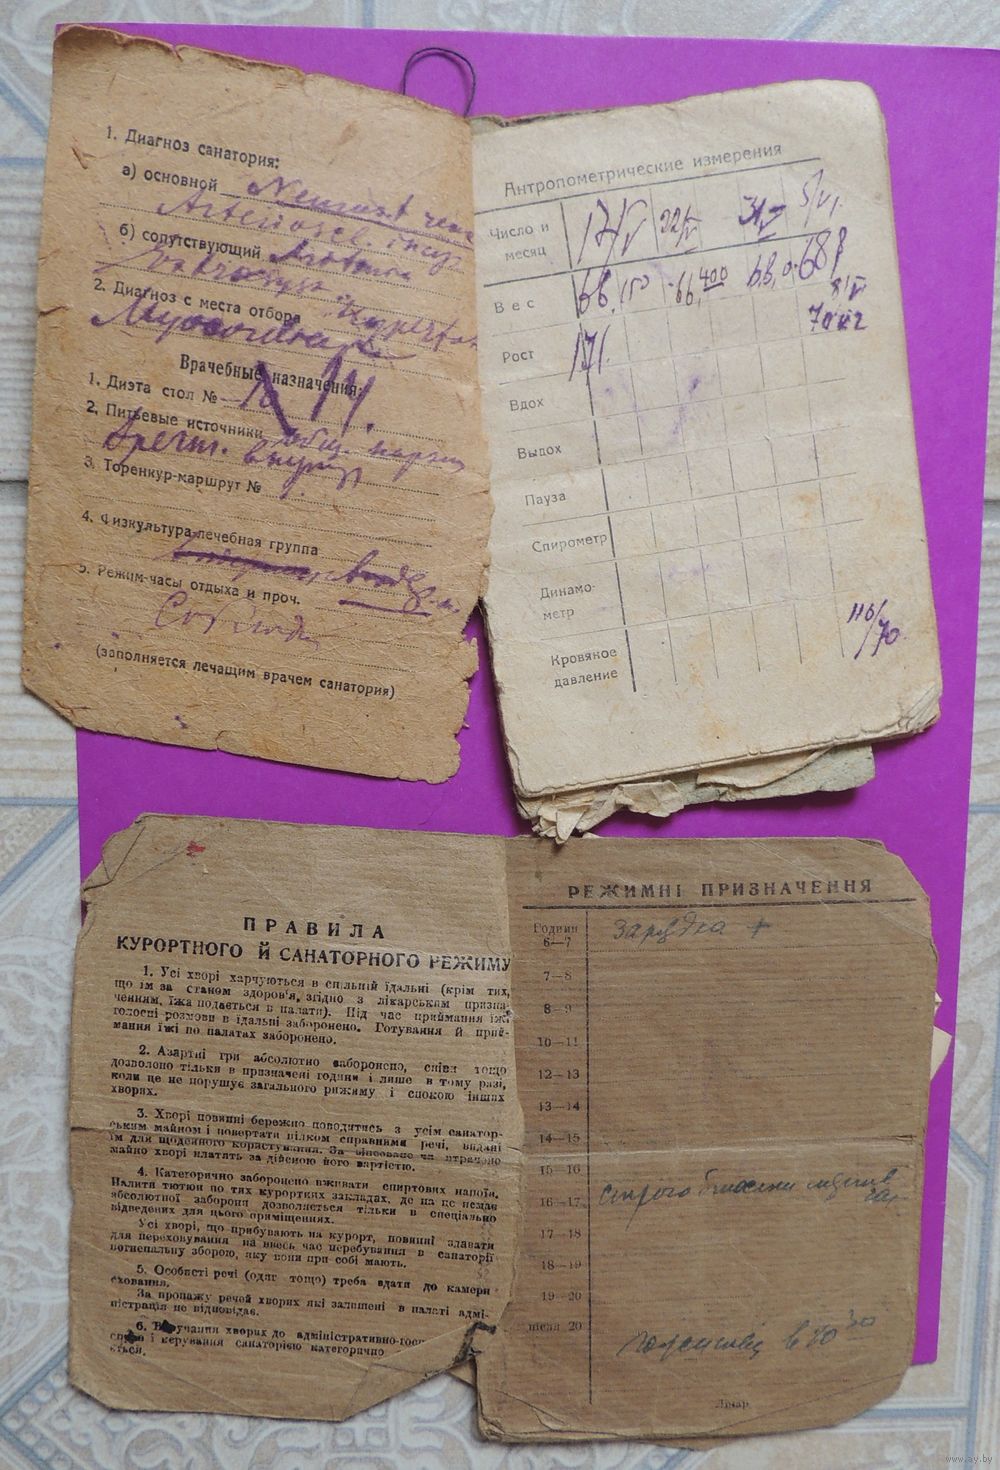 1. Диагноз санатория:
а) основной
Arteriosel.
б) сопутствующий
2. Диагноз с места отбора
Врачебные назначения:
1. Диэта стол № 14.
2. Питьевые источники
3. Торенкур-маршрут №
4. Физкультура-лечебная группа
5. Режим-часы отдыха и проч.
(заполняется лечащим врачем санатория)
Антропометрические измерения
Число и месяц 17/V 22/V 31/V 5/VI
Вес 68,150 66,400 68,0
70 кг
Рост 171.
Вдох
Выдох
Пауза
Спирометр
Динамо-
метр
Кровяное
давление
110/70
ПРАВИЛА
КУРОРТНОГО Й САНАТОРНОГО РЕЖИМУ
1. Усі хворі харчуються в спільній їдальні (крім тих,
що їм за станом здоров'я, згідно з лікарським призна-
ченням, їжа подається в палати). Під час приймання їжі
голосні розмови в їдальні заборонено. Готування й прий-
мання їжі по палатах заборонено.
2. Азартні гри абсолютно заборонено, співи тощо
дозволено тільки в призначені години і лише в тому разі,
коли це не порушує загального рижиму і спокою інших
хворих.
3. Хворі повинні бережно поводитись з усім санатор-
ським майном і повертати цілком справними речі, видані
їм для щоденного користування. За зіпсоване чи втрачено
майно хворі платять за дійсною його вартістю.
4. Категорично заборонено вживати спиртових напоїв.
Палити тютюн по тих курортних закладах, де на це немає
абсолютної заборони дозволяється тільки в спеціально
відведених для цього приміщеннях.
Усі хворі, що прибувають на курорт, повинні здавати
для переховування на ввесь час перебування в санаторії
вогнепальну зброю, яку вони при собі мають.
5. Особисті речі (одяг тощо) треба здати до камери
ховання.
За пропажу речей хворих які залишені в палаті адмі-
ністрація не відповідає.
6. Втручання хворих до адміністративно-гос
і керування санаторією категорично
ється.
РЕЖИМНІ ПРИЗНАЧЕННЯ
Годнин
6—7 зарядка +
7—8
8—9
10—11
12—13
13—14
14—15
15—16
16—17 строго
17—18
18—19
19—20
після 20
в 10 30
Лікар
www.ay.by